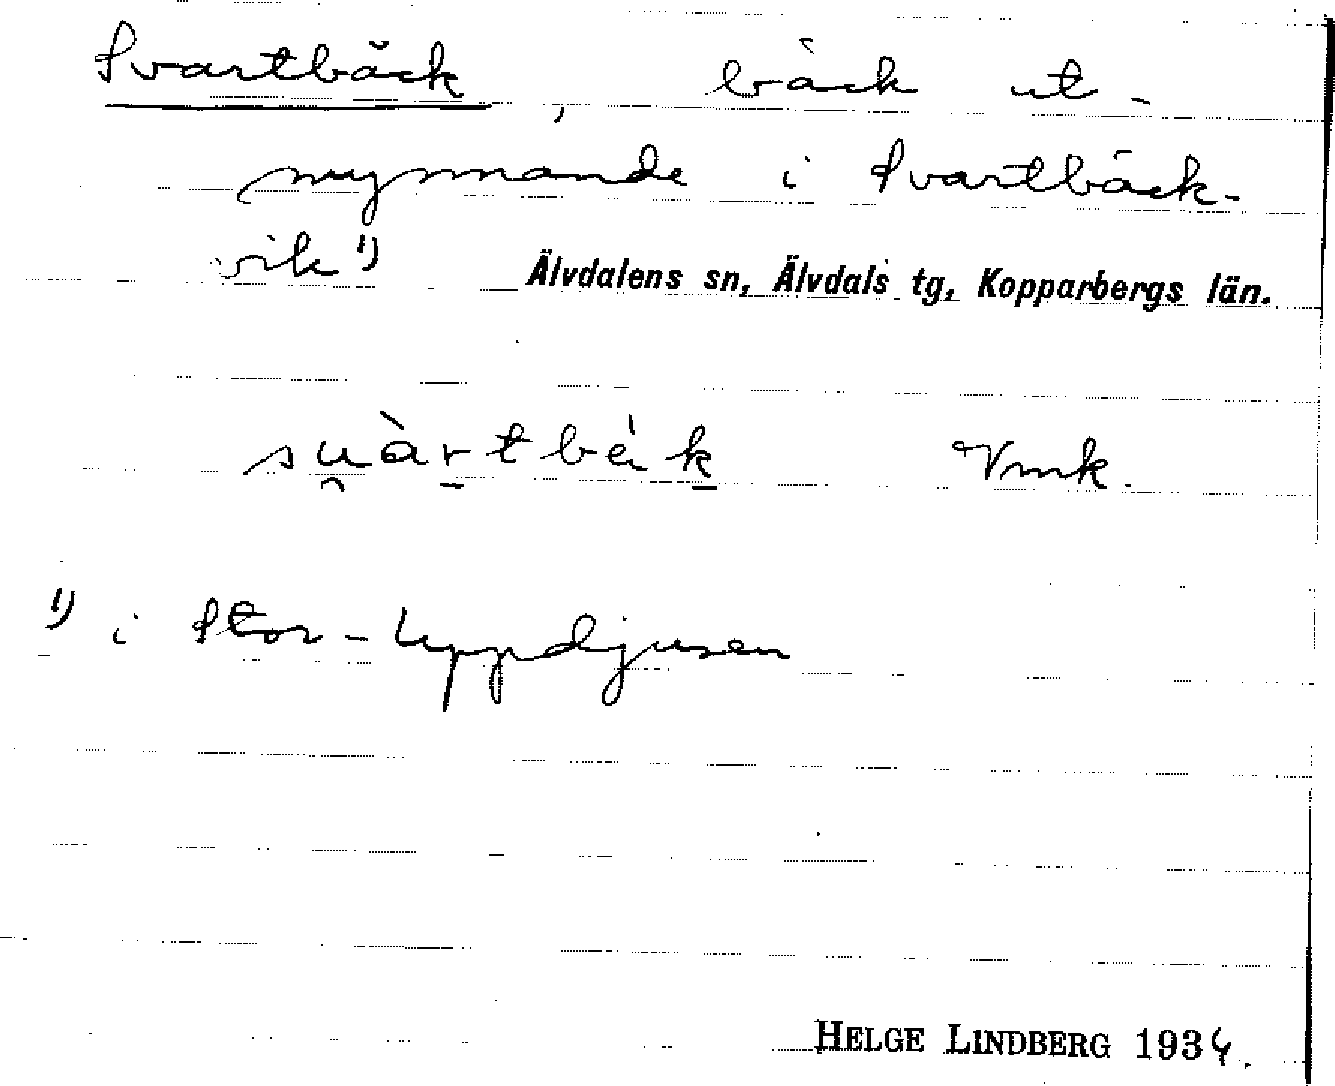 Svartbäck, bäck ut-
mynnande i Svartbäck-
vik 1) Älvdalens sn, Älvdals tg, Kopparbergs län.
su̯àr̠tbèk̠ Vmk.
1) i Stor-Uppdjusen
HELGE LINDBERG 1934.